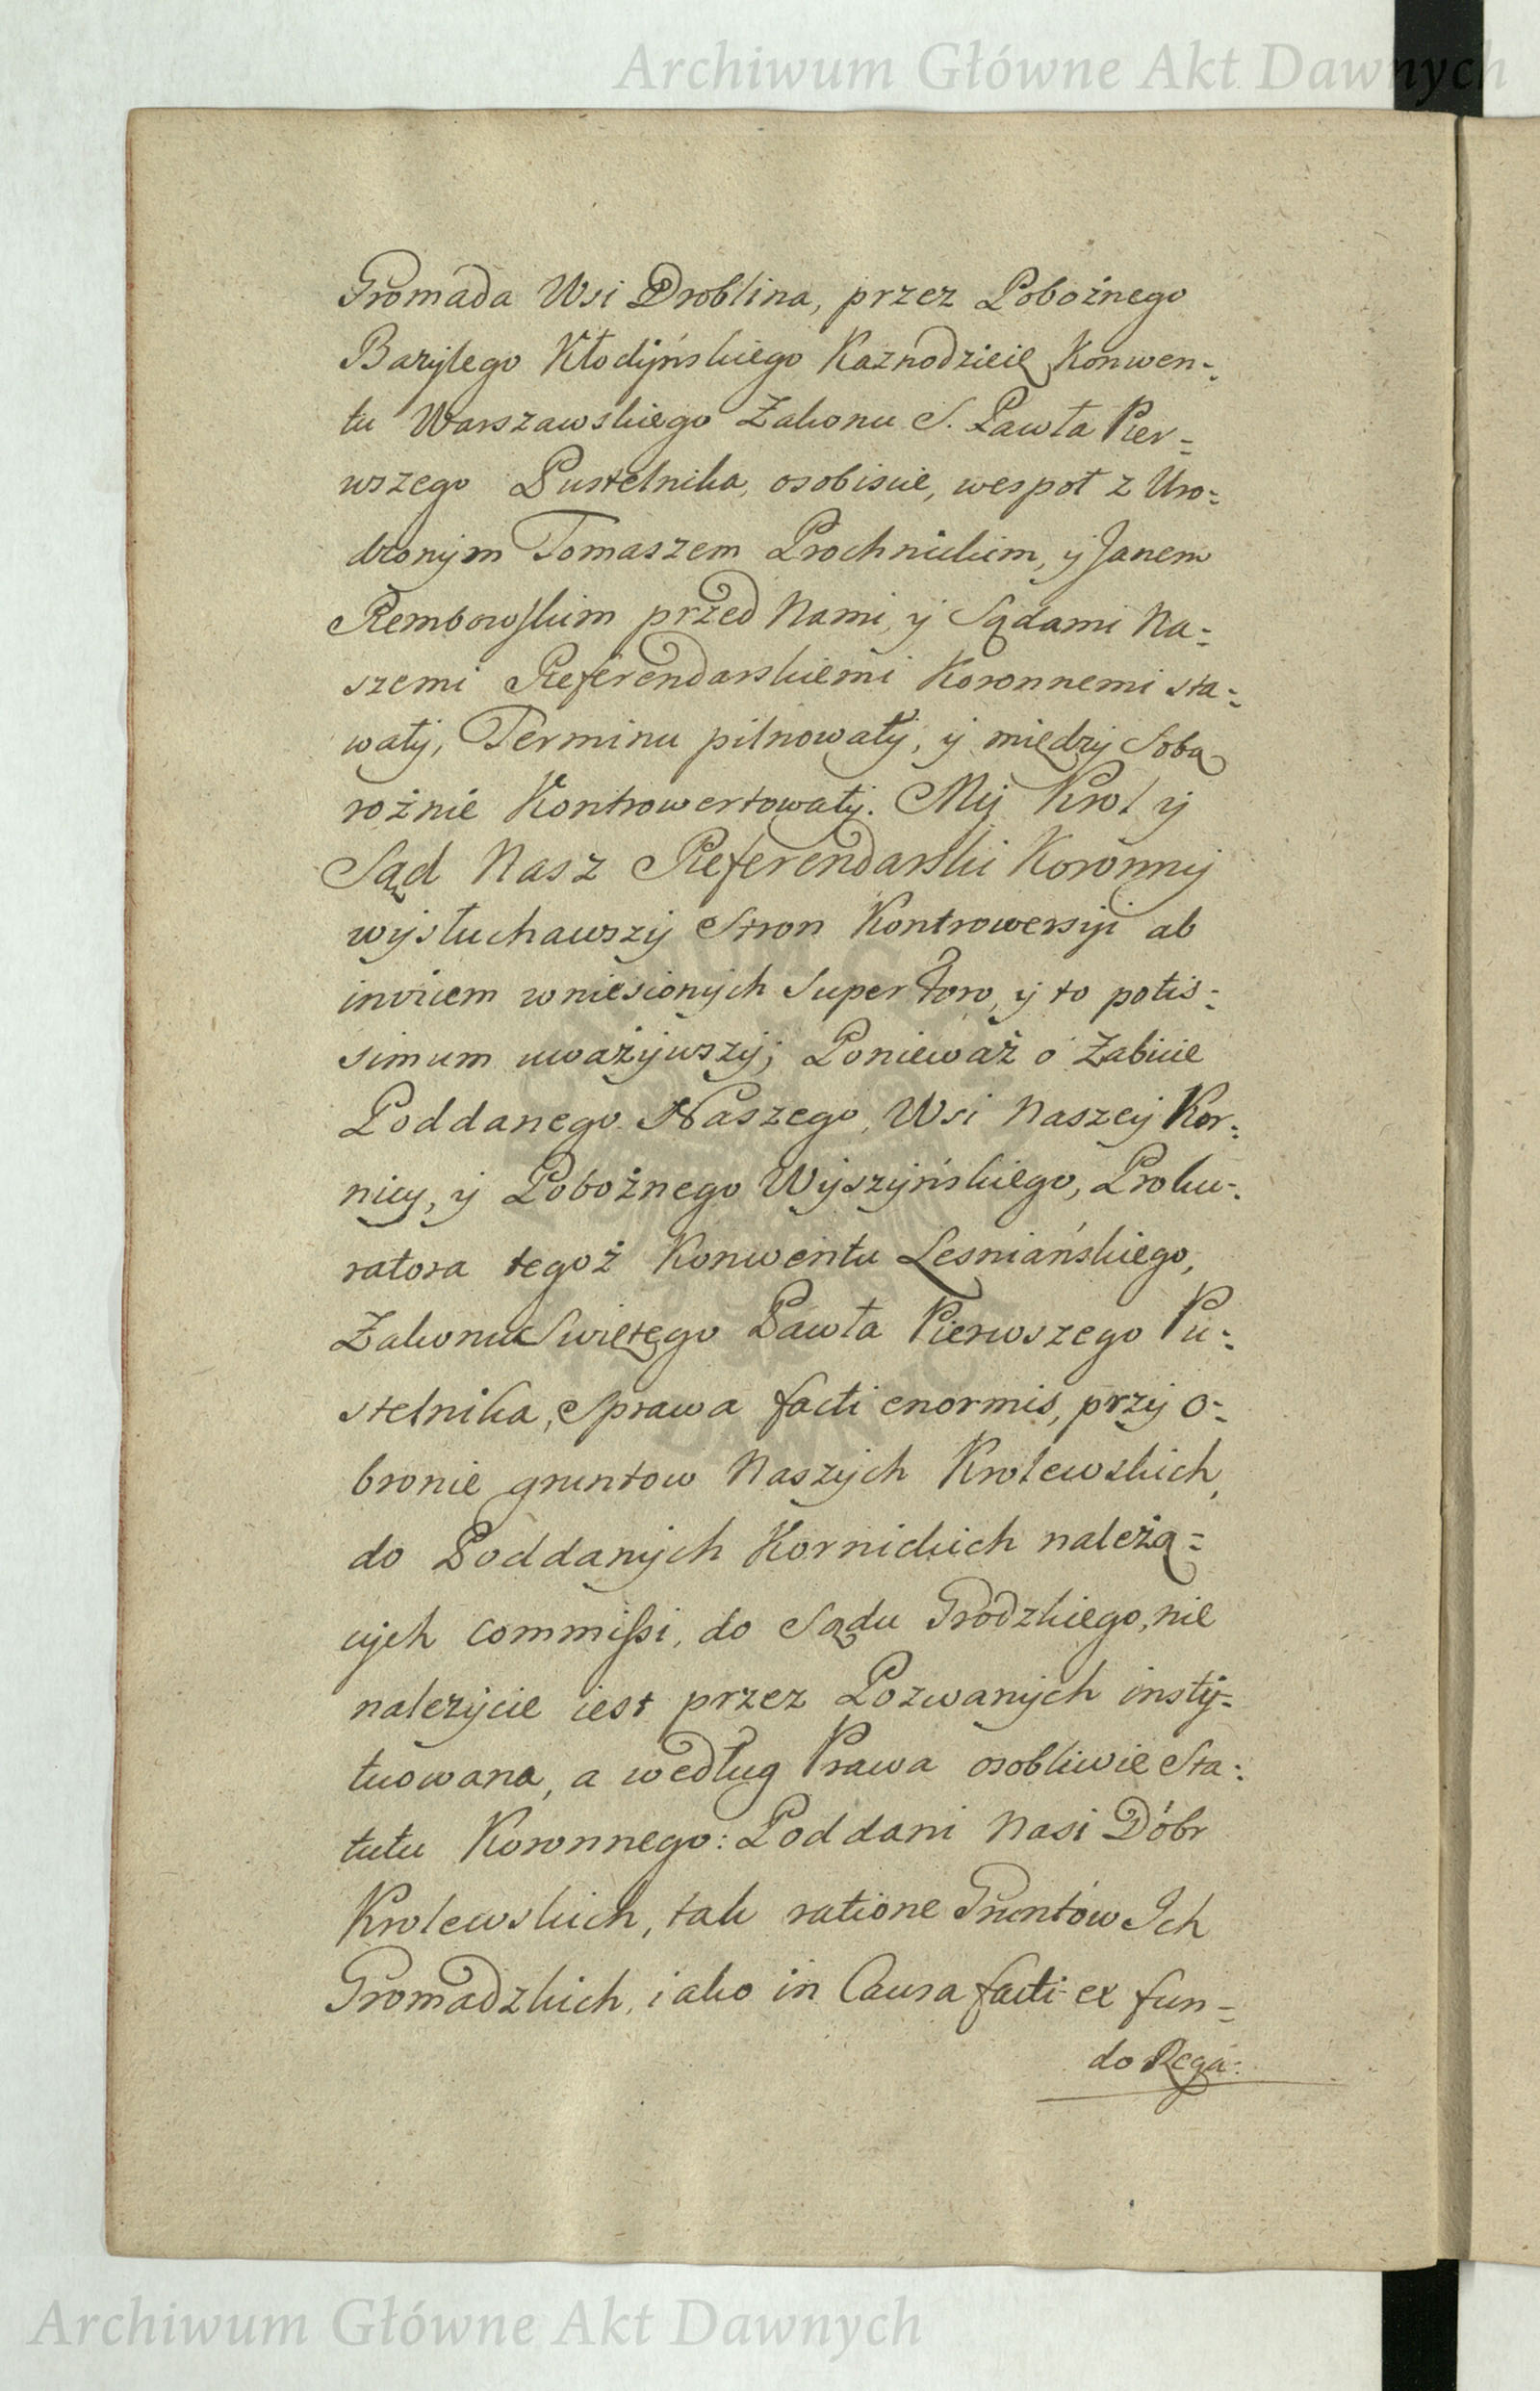 Archiwum Główne Akt Dawnych
Gromada Wsi Droblina, przez Pobożnego
Bazylego Kłodyńskiego Kaznodzieię Konwen-
tu Warszawskiego Zakonu S. Pawła Pier=
wszego Pustelnika, osobiscie, wespoł z Uro=
dzonym Tomaszem Prochnickim, y Janem
Rembowskim przed Nami, y Sądami Na=
szemi Referendarskiemi Koronnemi sta=
wały, Terminu pilnowały, y między Sobą
rożnie Kontrowertowały. My Krol y
Sąd Nasz Referendarski Koronny
wysłuchawszy Stron Kontrowersyi ab
invicem wniesionych Super Foro, y to potis=
simum uważywszy; Ponieważ o Zabicie
Poddanego Naszego, Wsi Naszey Kor=
nicy, y Pobożnego Wyszyńskiego, Proku=
ratora tegoż Konwentu Lesniańskiego,
Zakonu Swiętego Pawła Pierwszego Pu=
stelnika, Sprawa facti enormis, przy O=
bronie gruntow Naszych Krolewskich,
do Poddanych Kornickich należą=
cych commissi, do Sądu Grodzkiego, nie
należycie iest przez Pozwanych insty=
tuowana, a według Prawa osobliwie Sta=
tutu Koronnego: Poddani Nasi Dóbr
Krolewskich, tak ratione Gruntów Ich
Gromadzkich, iako in Causa facti ex fun=
do Rega:
Archiwum Główne Akt Dawnych